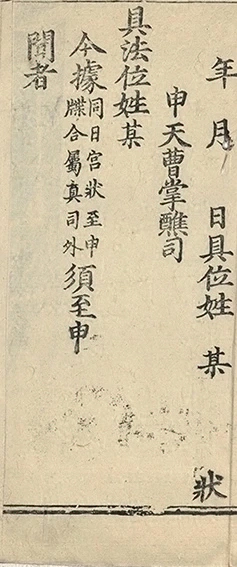 年 月 日具位姓 某 狀
申天曹掌醮司
具法位姓某
今據同日宮狀至申牒合屬真司外須至申
聞者